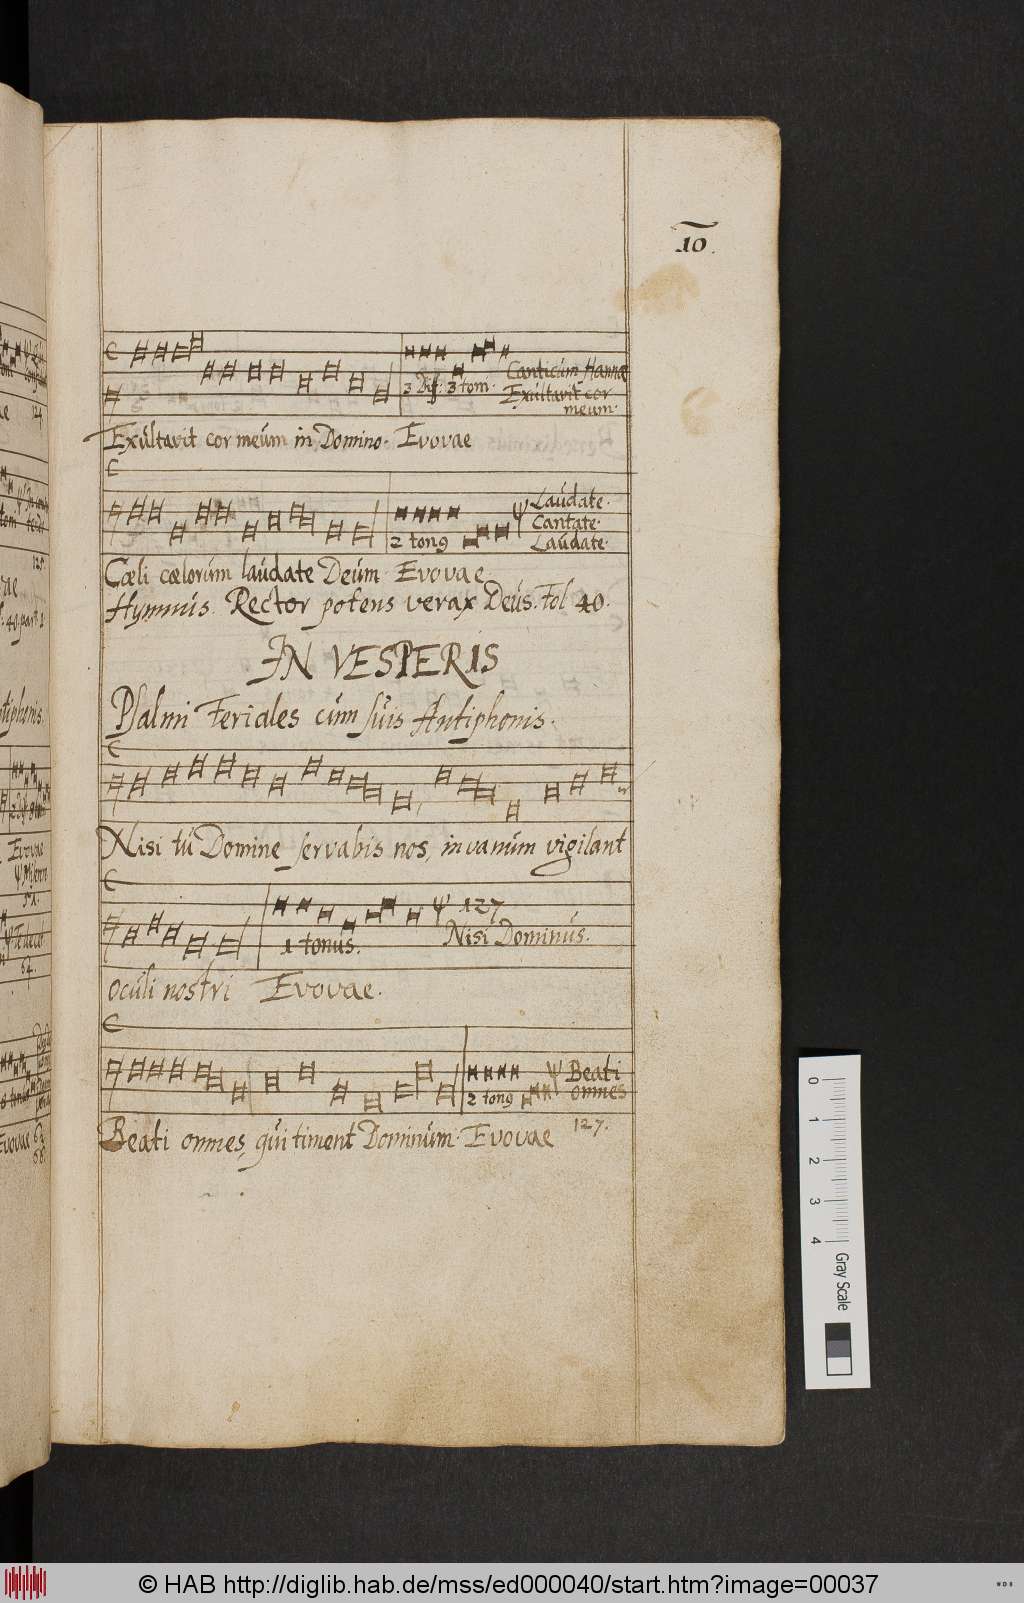 10.
3 Dif: 3 toni.
Canticum Hannæ
Exultavit cor
meum.
Exultavit cor meum in Domino. Evovae
2 tong
Laudate.
Cantate.
Laudate.
Cœli cœlorum laudate Deum. Evovae.
Hymnus. Rector potens verax Deus. Fol 40.
IN VESPERIS
Psalmi Feriales cum suis Antiphonis.
Nisi tu Domine servabis nos, in vanum vigilant
1 tonus.
127
Nisi Dominus.
oculi nostri Evovae.
2 tong
Beati
omnes
127.
Beati omnes, qui timent Dominum. Evovae
0
1
2
3
4
Gray Scale
© HAB http://diglib.hab.de/mss/ed000040/start.htm?image=00037